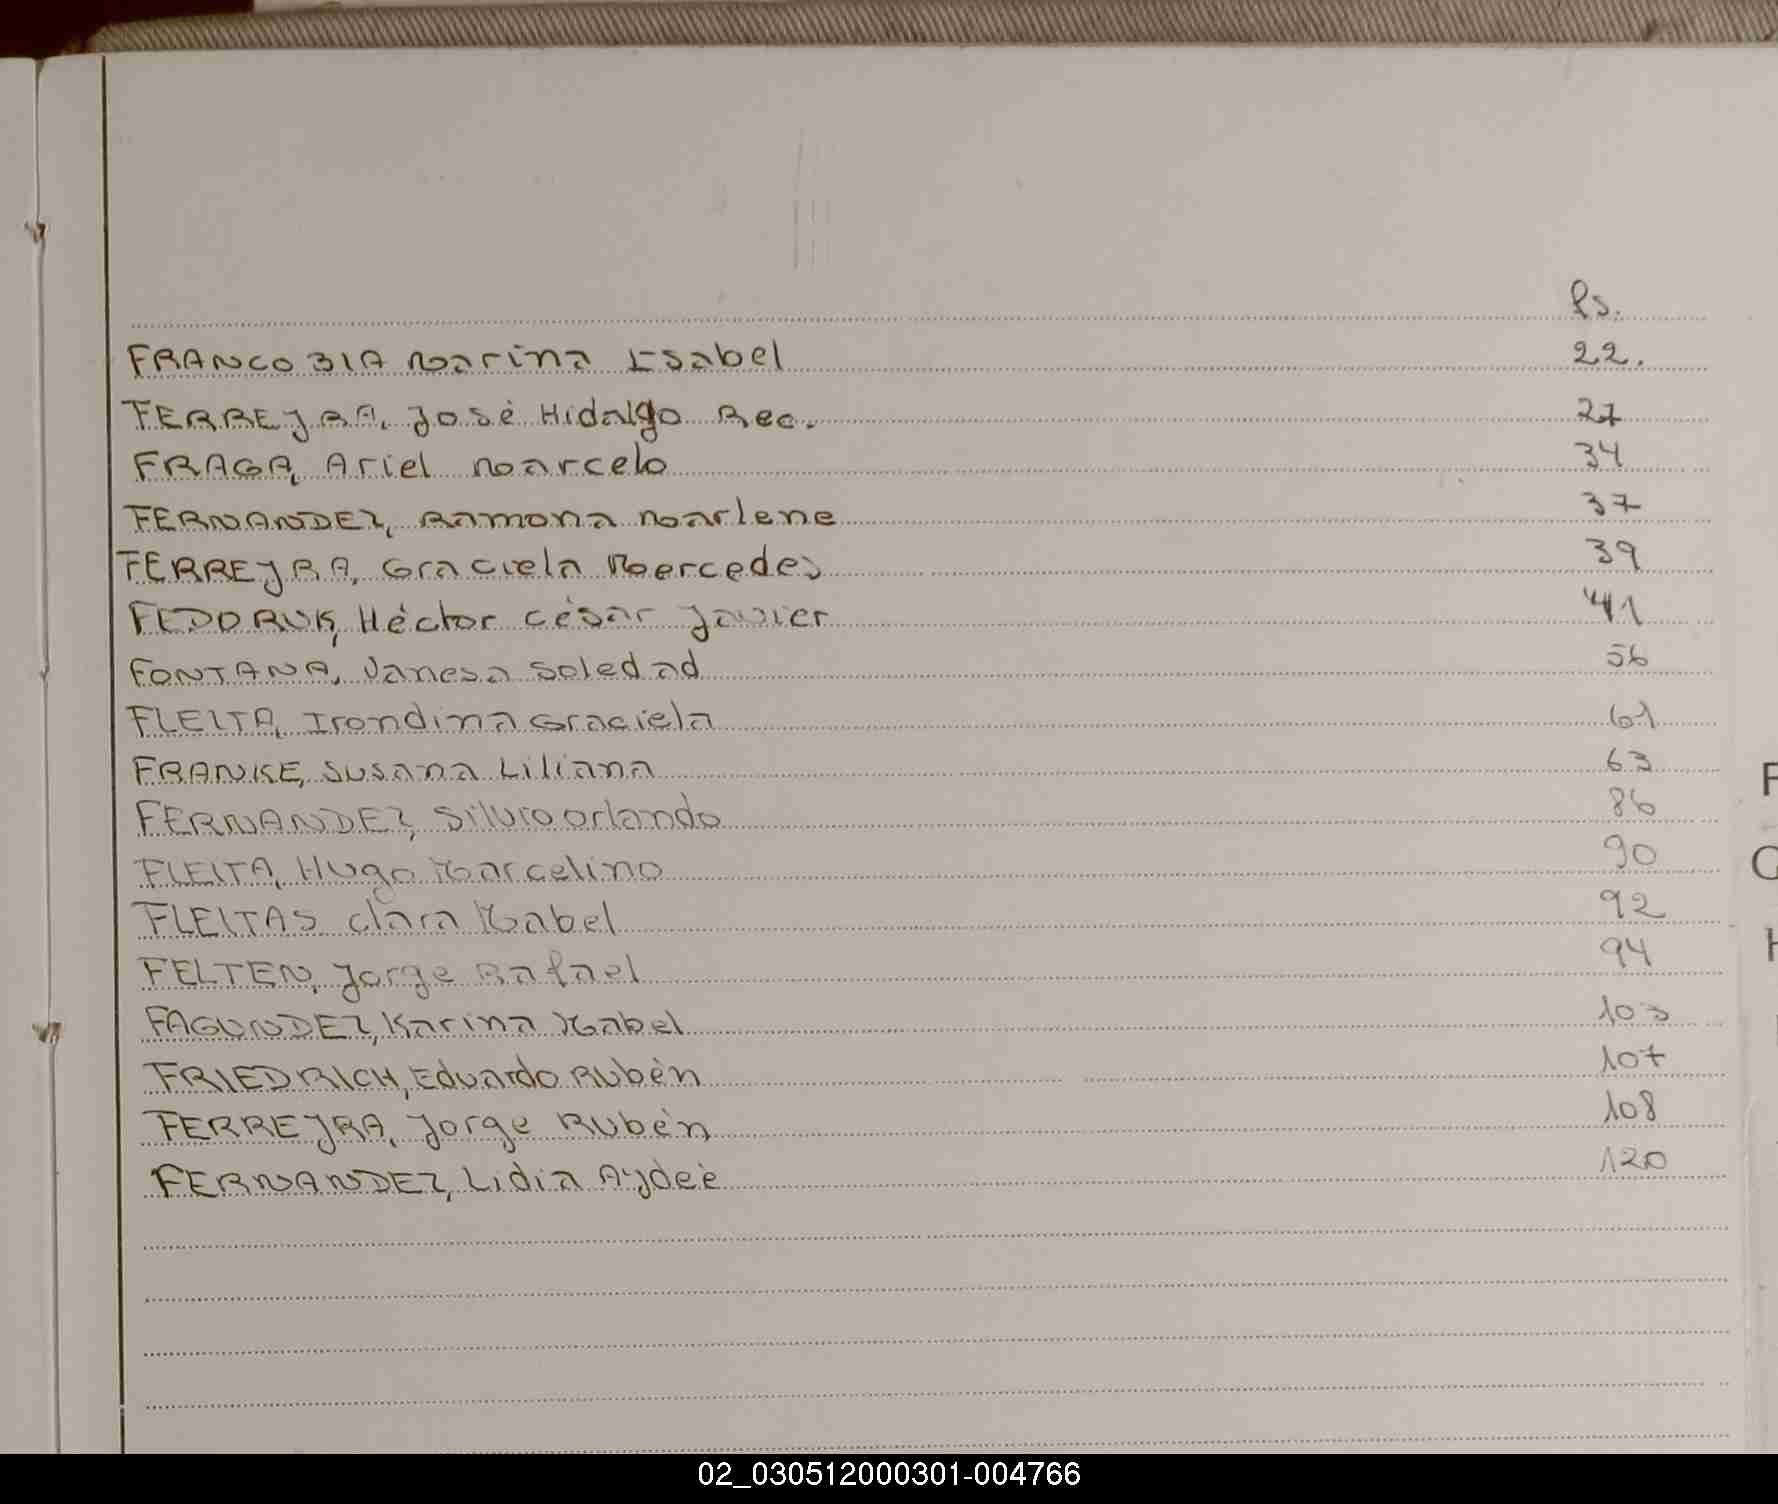 fs.
FRANCO BIA Marina Isabel 22.
FERREYRA, José Hidalgo Rec. 27
FRAGA, Ariel Marcelo 34
FERNANDEZ, Ramona Marlene 37
FERREYRA, Graciela Mercedes 39
FEDORUK, Héctor César Javier 41
FONTANA, Vanesa Soledad 56
FLEITA, Irondina Graciela 61
FRANKE, Susana Liliana 63
FERNANDEZ, Silvio Orlando 86
FLEITA, Hugo Marcelino 90
FLEITAS Clara Mabel 92
FELTEN, Jorge Rafael 94
FAGUNDEZ, Karina Mabel 103
FRIEDRICH, Eduardo Rubén 107
FERREYRA, Jorge Rubén 108
FERNANDEZ, Lidia Aydeé 120
F
G
H
02_030512000301-004766